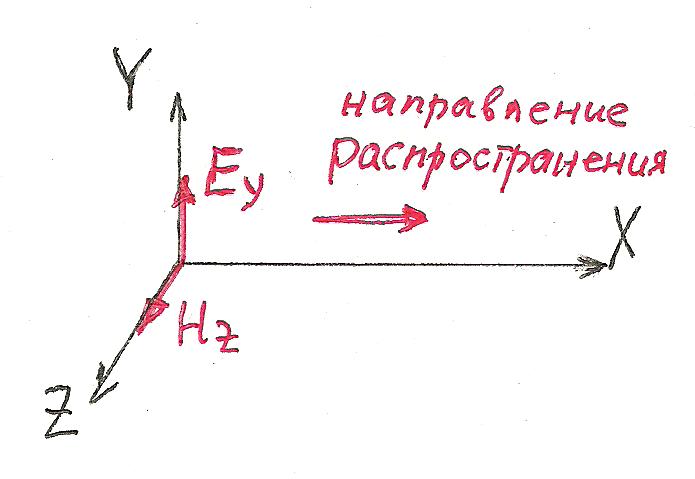 Y
направление
распространения
Ey
X
Hz
Z